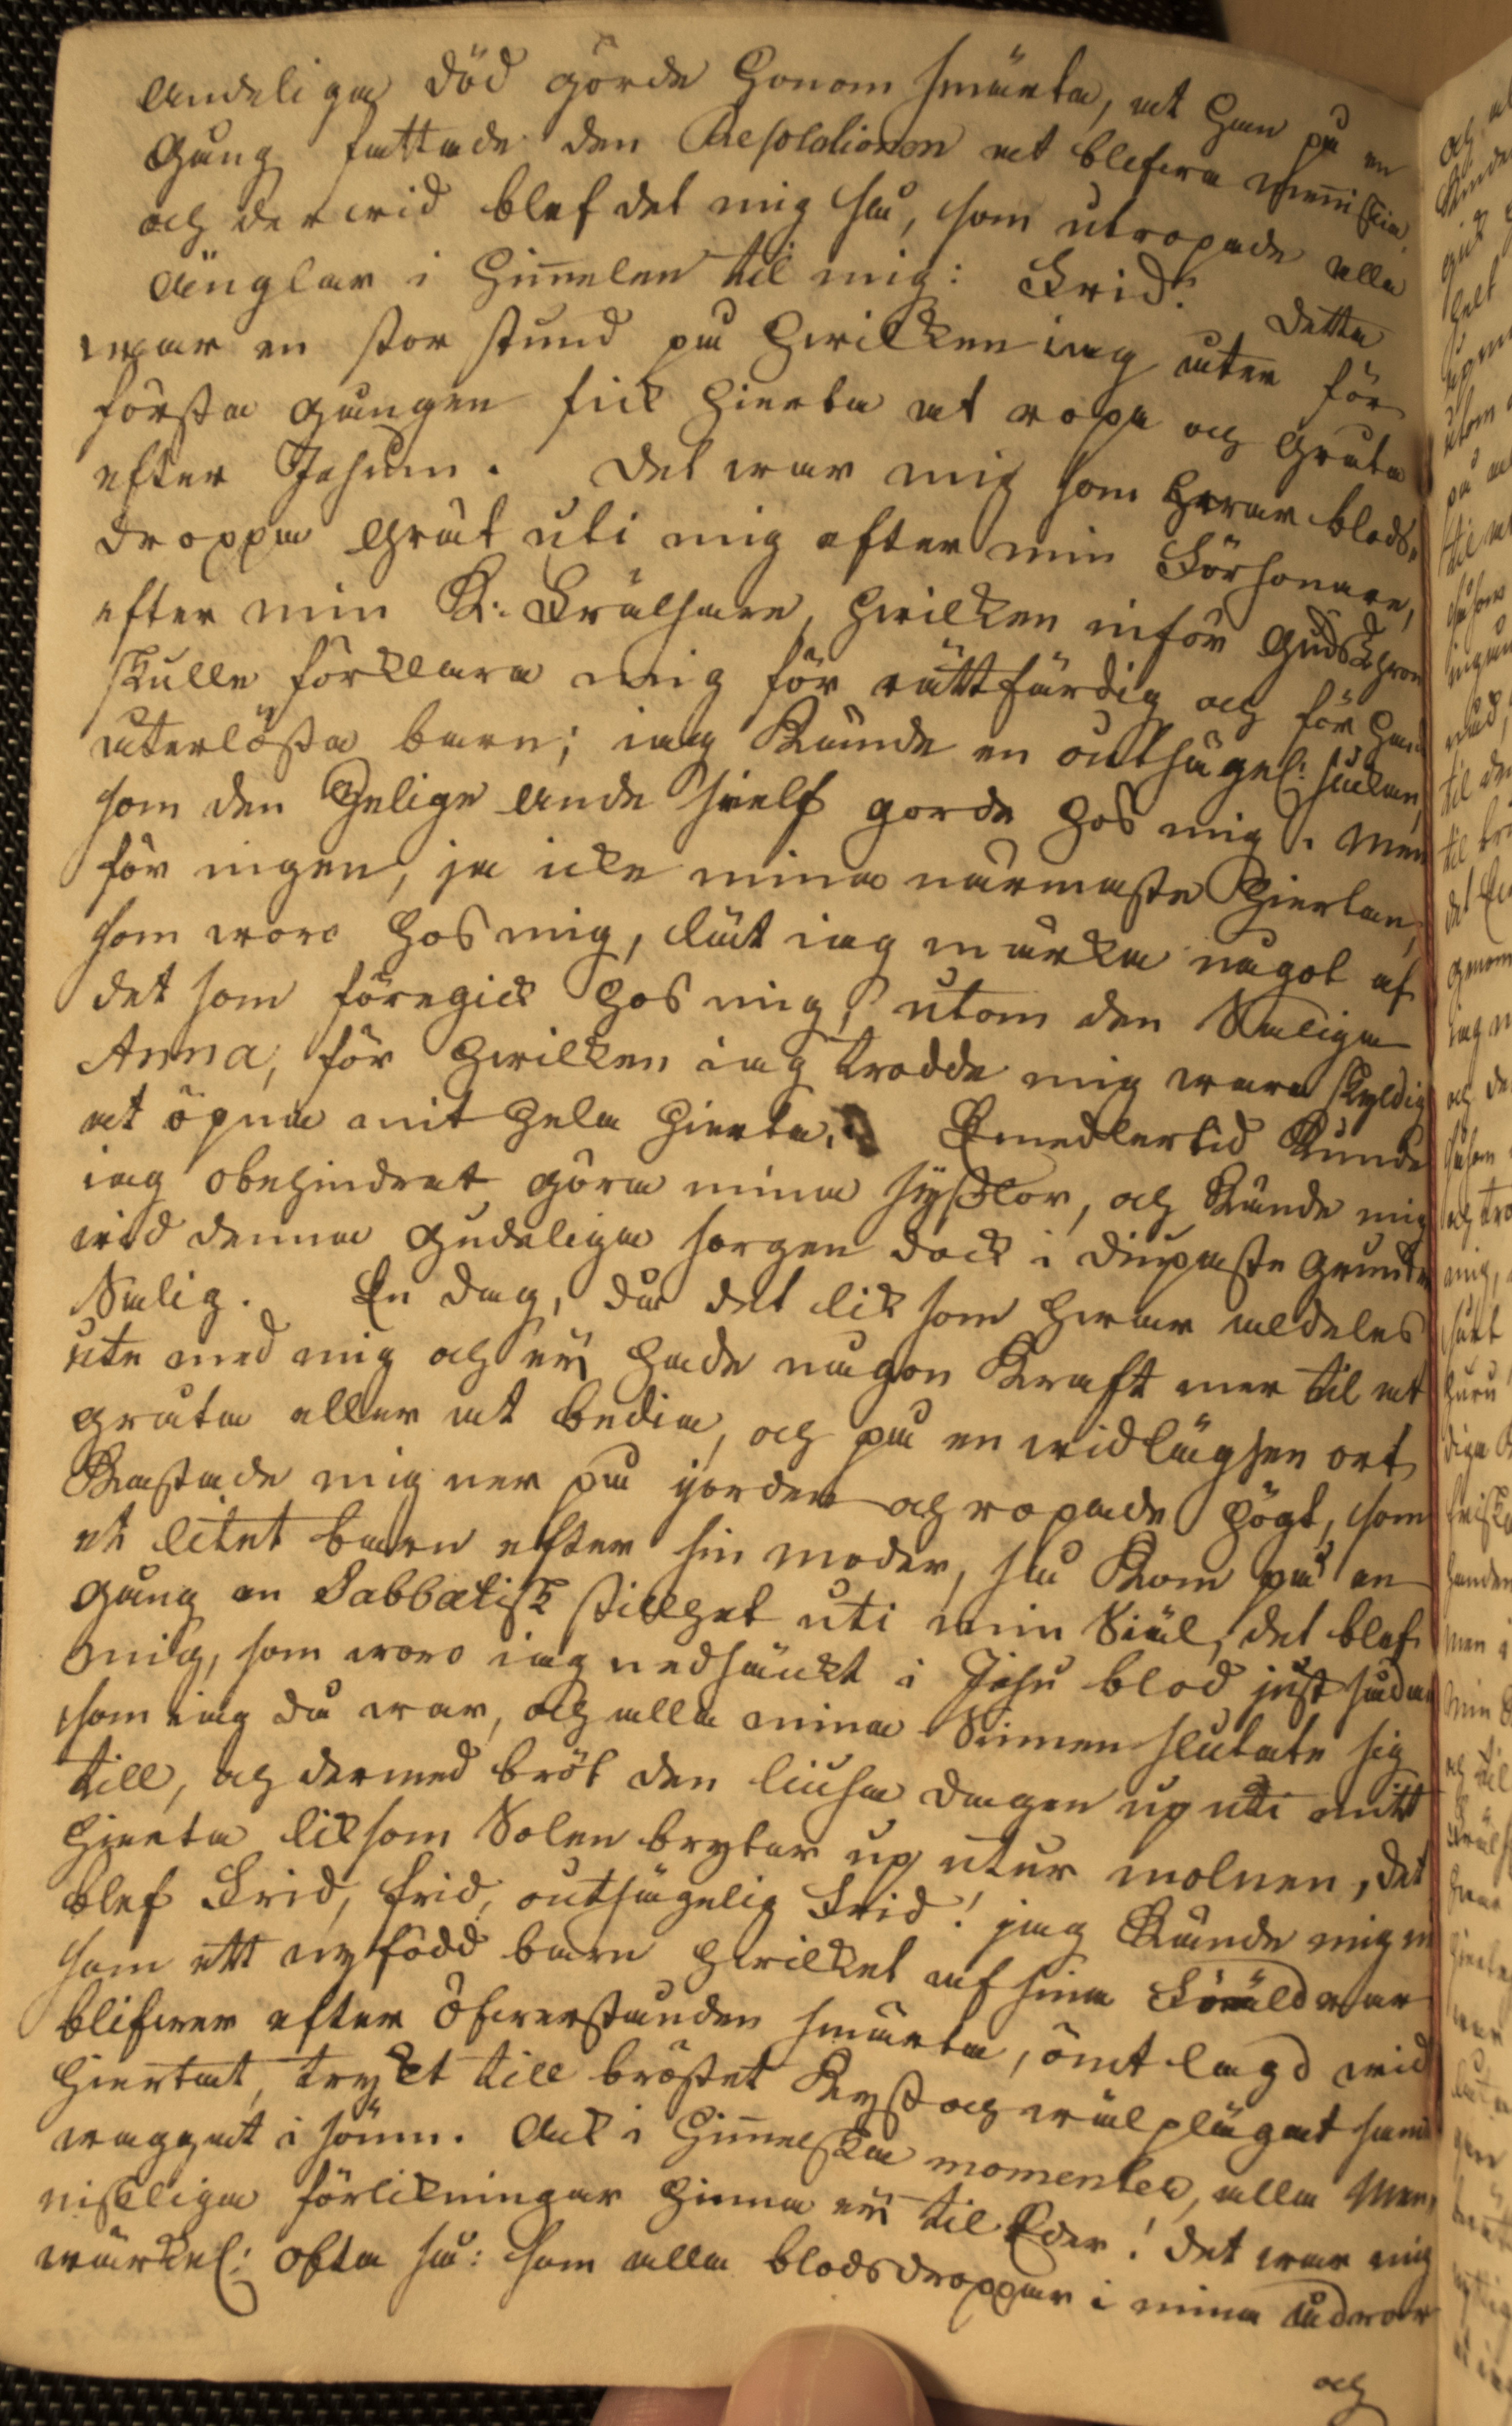 Andeliga död gorde honom smärta, at han på en
gång fattade den Resolutionen at blifwa Menniskia,
och derwid blef det mig så, som utropade alla
Änglar i Himmelen til mig: Frid! Detta
war en stor stund på hwilken iag åter för
första gången fick hierta at ropa och gråta
efter Jesum. Det war mig som hwar blods-
droppa gråt uti mig efter min Försonare,
efter min K: Frälsare, hwilken inför Guds Thron
skulle förklara mig för rättfärdig och för hans
återlösta barn; iag kände en outsägel: suckan,
som den Helige Ande sielf gorde hos mig. Men
för ingen, ja icke mina närmaste Hiertan,
som woro hos mig, lät iag märka något af
det som föregick hos mig, utom den Saliga
Anna, för hwilken iag trodde mig wara skyldig
at öpna mit hela hierta. Emedlertid kunde
iag obehindrat göra mina sysslor, och kände mig
wid denna gudeliga sorgen dock i diupaste grunden
Salig. En dag, då det lik som hwar aldeles
ute med mig och ej hade någon kraft mer til at
gråta eller at bedia, och på en widlägsen ort
kastade mig ner på jorden och ropade högt, som
et litet barn efter sin moder, så kom på en
gång en Sabbatisk stillhet uti min Siäl, det blef
mig, som woro iag nedsänkt i Jesu blod just sådan
som iag då war, och alla mina Sinnen slutate sig
till, och dermed bröt den liusa dagen up uti mitt
hierta liksom Solen bryter up utur molnen, det
blef Frid, frid, outsägelig Frid! jag kände mig
som ett nyfödd barn hwilket af sina Föräldrar
blifwer efter öfwerstånden smärta, ömt lagd wid
hiertat, tryckt till bröstet kyst och wälplägat samt
waggat i sömn. Ack i Himmelska momenter, alla Men-
niskliga förlikningar hinna ej til Eder! det war mig
wärckel: ofta så: som alla blodsdroppar i mina ådror
och